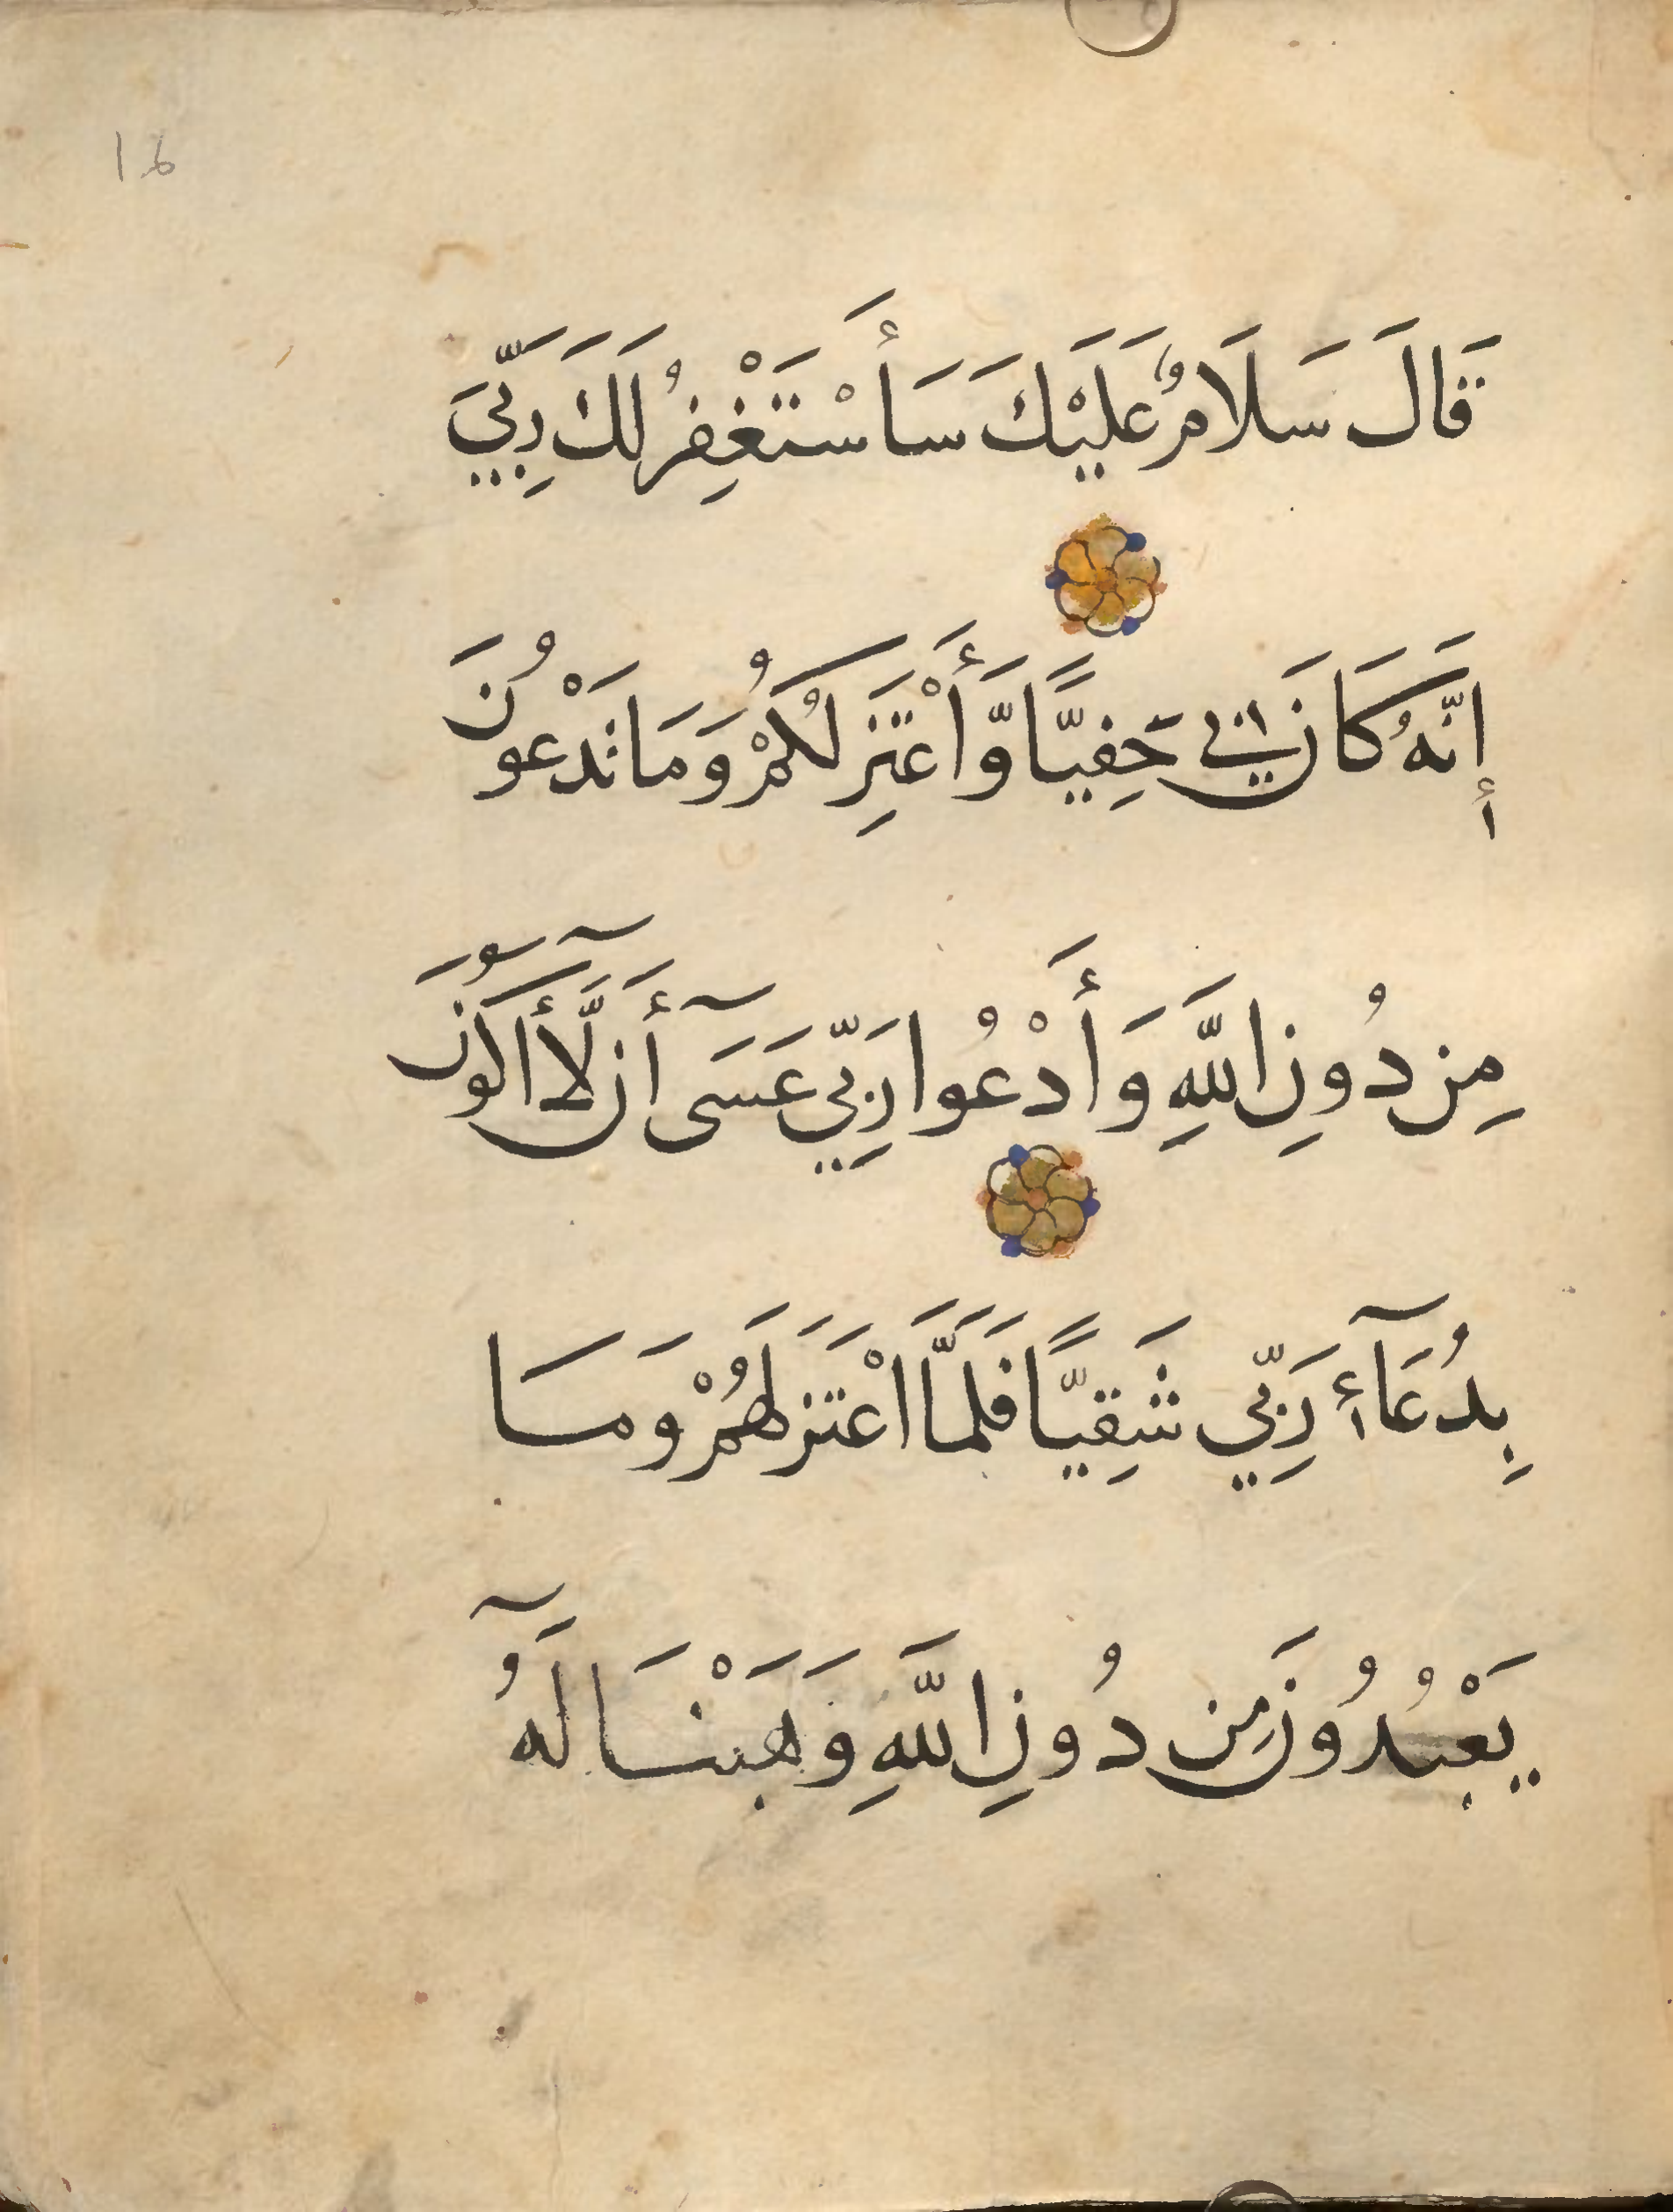 16
قَالَ سَلَامٌ عَلَيْكَ سَأَسْتَغْفِرُ لَكَ رَبِّيَ
إِنَّهُ كَانَ بِي حَفِيًّا وَّأَعْتَزِلُكُمْ وَمَا تَدْعُونَ
مِن دُونِ اللَّهِ وَأَدْعُوا رَبِّي عَسَىٓ أَن لَّآ أَكُونَ
بِدُعَآءِ رَبِّي شَقِيًّا فَلَمَّا اعْتَزَلَهُمْ وَمَا
يَعْبُدُونَ مِن دُونِ اللَّهِ وَهَبْنَا لَهُٓ